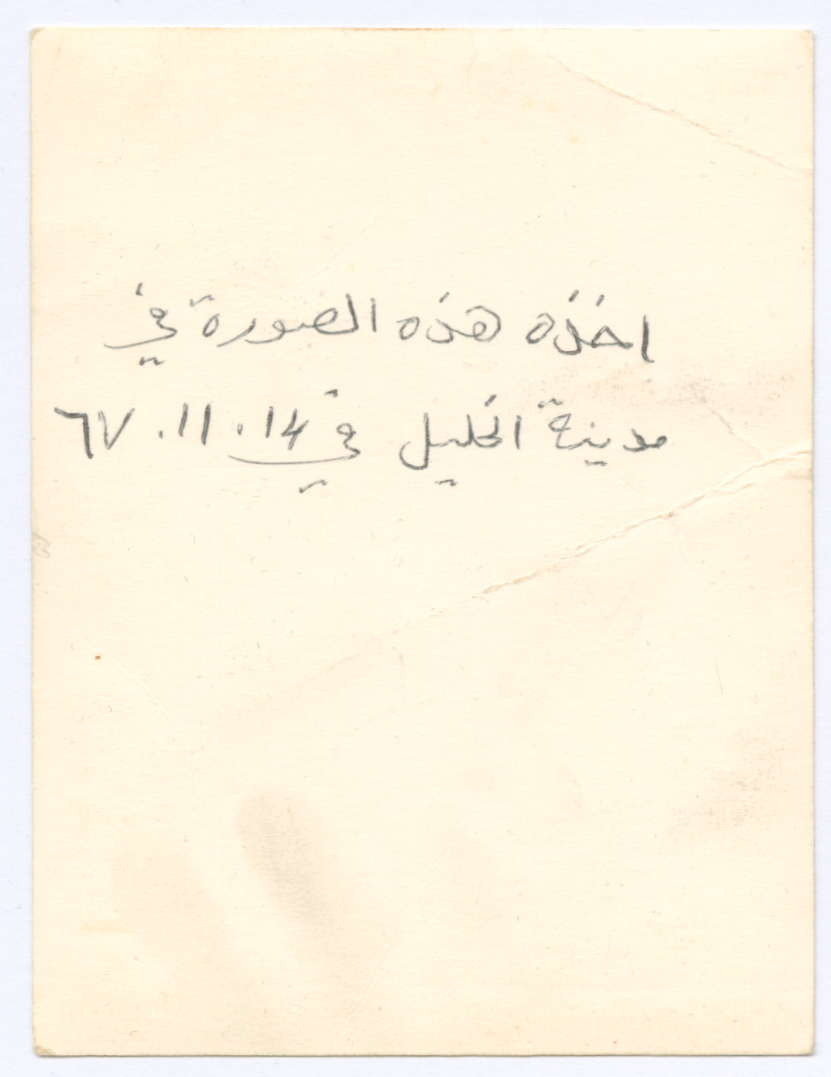 اخذه هذه الصورة في
مدينة الخليل في ١٤.١١.٦٧